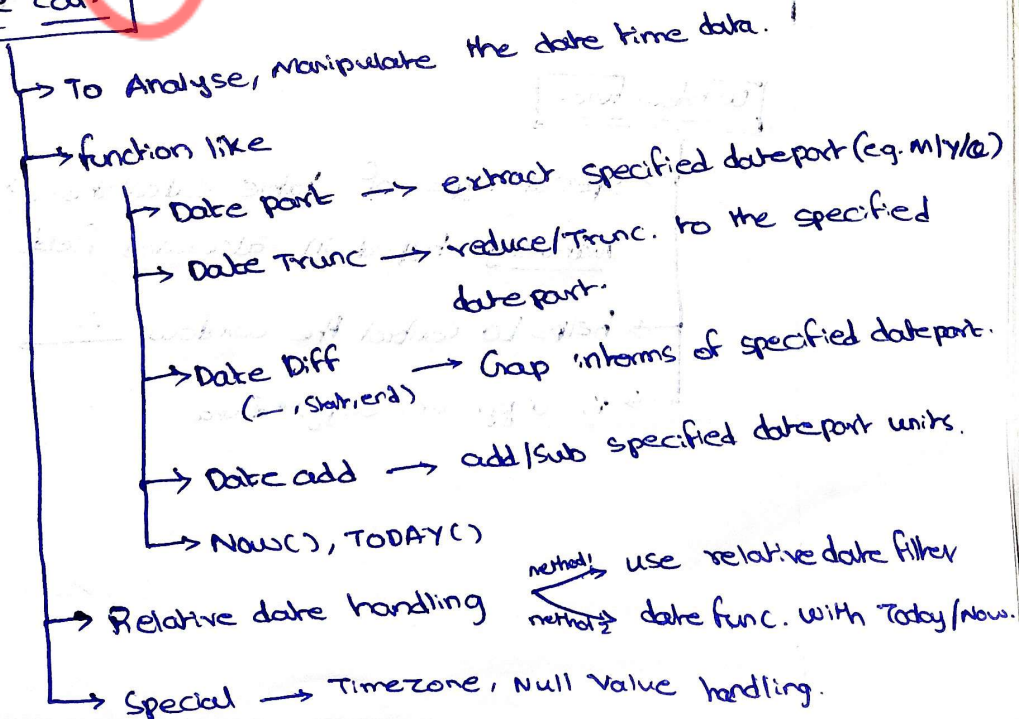 → To Analyse, Manipulate the date time data.
→ function like
→ Date part → extract specified datepart (eg. M/Y/Q)
→ Date Trunc → reduce/Trunc. to the specified
date part.
→ Date Diff → Gap interms of specified datepart.
(—, Start, end)
→ Date add → add/sub specified datepart units.
→ NOW(), TODAY()
→ Relative date handling method1 → use relative date filter
method2 → date func. with Today/Now.
→ Special → Timezone, Null Value handling.